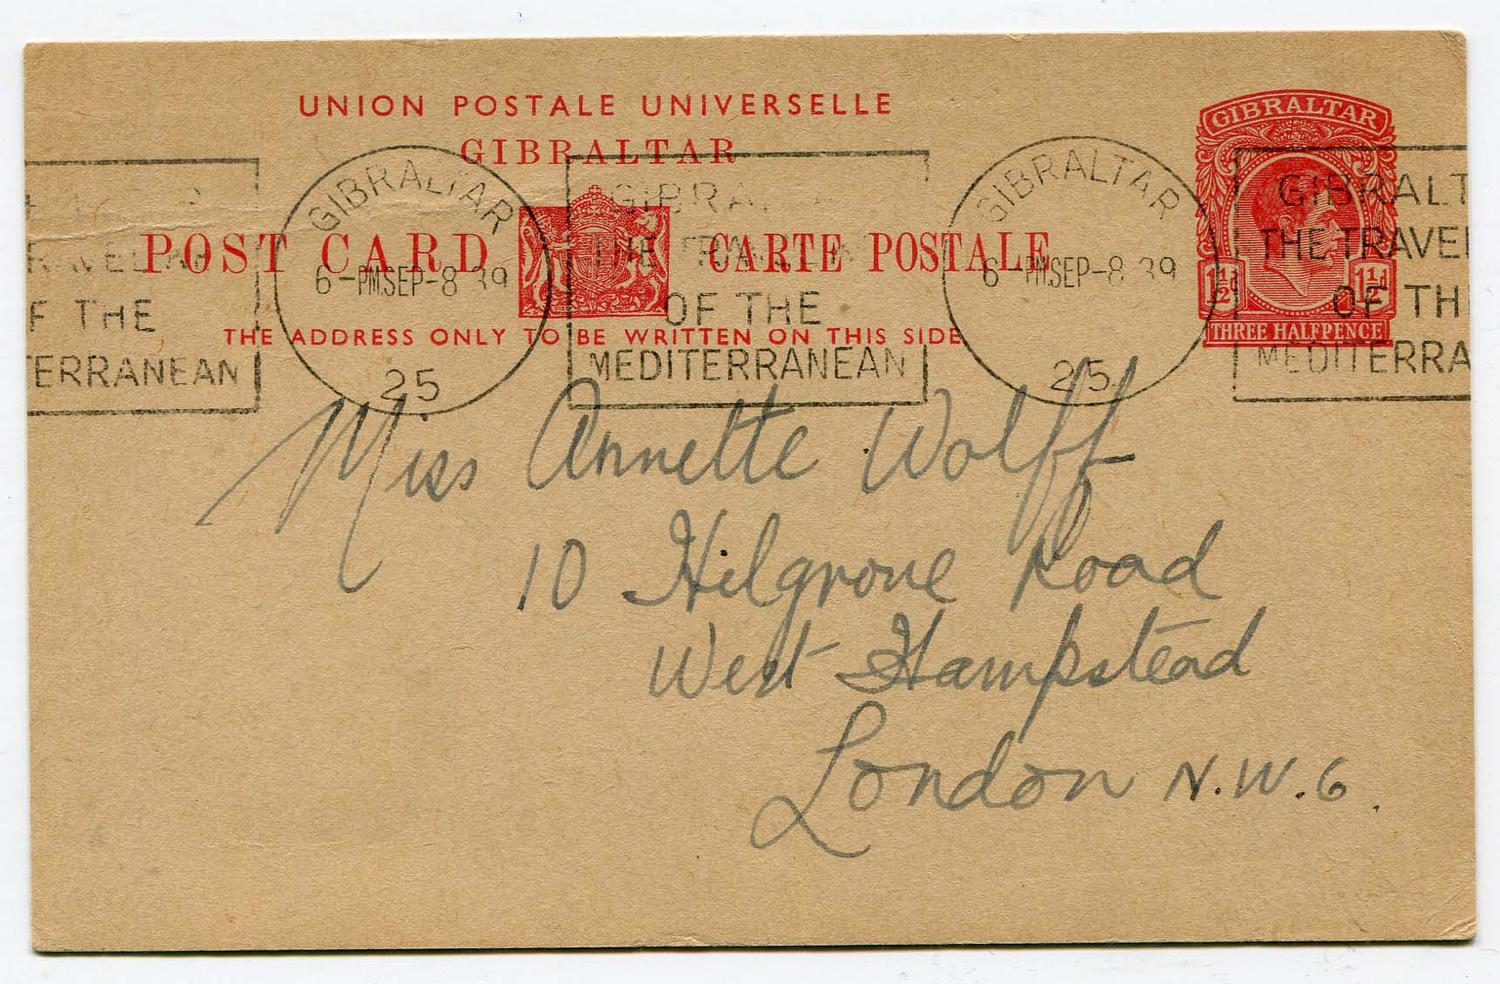 UNION POSTALE UNIVERSELLE
GIBRALTAR
POST CARD CARTE POSTALE
THE ADDRESS ONLY TO BE WRITTEN ON THIS SIDE
GIBRALTAR
1½d 1½d
THREE HALFPENCE
F THE
TERRANEAN
GIBRALTAR
6-PM.SEP-8 39
25
GIBRA
THE TRAVEL
OF THE
MEDITERRANEAN
GIBRALTAR
6-PM.SEP-8 39
25
GIBRALT
THE TRAVEL
OF TH
MEDITERRA
Miss Annette Wolff
10 Hilgrove Road
West Hampstead
London N.W.6.